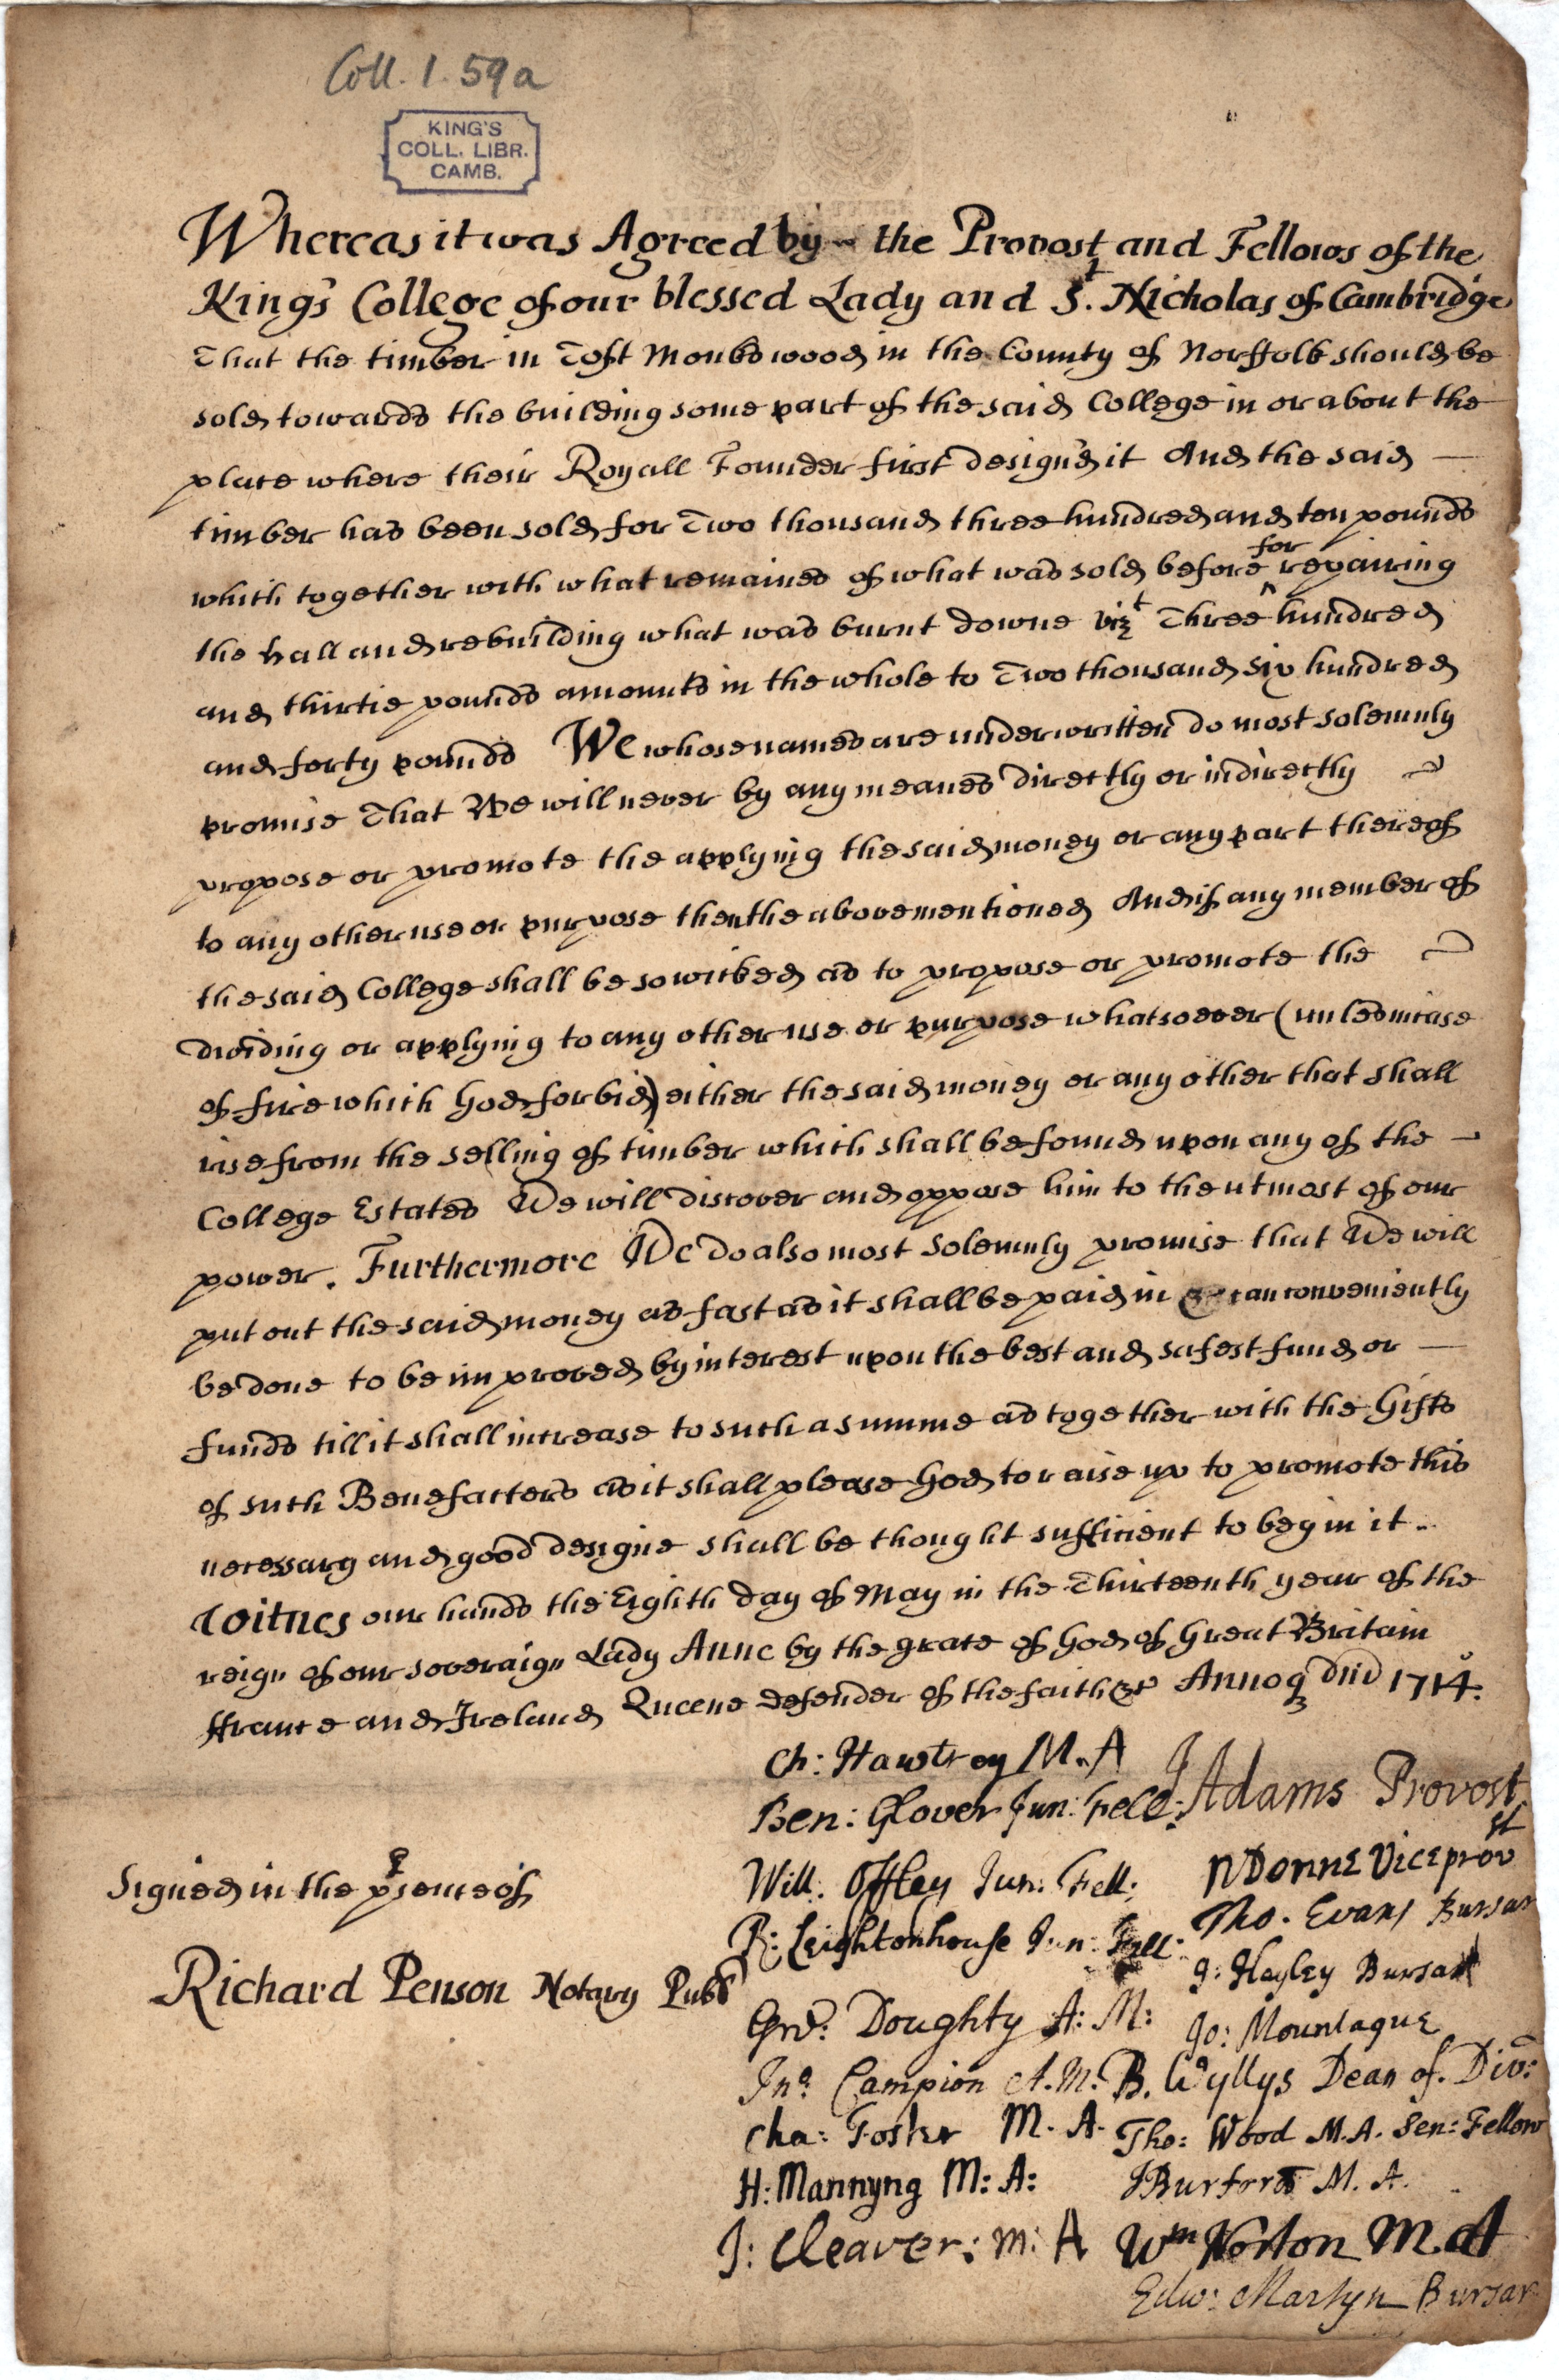 Coll. 1. 59a
KING'S
COLL. LIBR.
CAMB.
Whereas it was Agreed by the Provost and Fellows of the
King's College of our blessed Lady and St. Nicholas of Cambridge
That the timber in Toft Monks wood in the County of Norffolk should be
sold towards the building some part of the said College in or about the
place where their Royall Founder first design'd it And the said —
timber has been sold for Two thousand three hundred and ten pounds
for
which together with what remaines of what was sold before ^ repairing
the hall and rebuilding what was burnt downe vizt Three hundred
and thirtie pounds amounts in the whole to Two thousand six hundred
and forty pounds We whose names are underwritten do most solemnly
promise That We will never by any meanes directly or indirectly
propose or promote the applying the said money or any part thereof
to any other use or purpose then the abovementioned And if any member of
the said College shall be so wicked as to propose or promote the
dividing or applying to any other use or purpose whatsoever (unles in case
of fire which God forbid) either the said money or any other that shall
rise from the selling of timber which shall be found upon any of the —
College Estates We will discover and oppose him to the utmost of our
power. Furthermore We do also most solemnly promise that We will
put out the said money as fast as it shall be paid in can conveniently
be done to be improved by interest upon the best and safest fund or —
funds till it shall increase to such a summe as together with the Gifts
of such Benefacters as it shall please God to raise up to promote this
necessary and good designe shall be thought sufficient to begin it.
Witnes our hands the Eighth day of May in the Thirteenth year of the
reign of our soveraign Lady Anne by the grace of God of Great Britain
ffrance and Ireland Queene defender of the faith &c Annoq dni 1714.
Ch: Hawtrey M.A
J Adams Provost
Ben: Glover Jun: Fell:
Signed in the psence of
Will: Offley Jun: Fell:
N Donne Viceprovst
R: Leightonhouse Jun: Fell:
Tho. Evans Bursar
Richard Penson Notary Pubs
J: Hayley Bursar
Grd: Doughty A: M:
Jo: Mountague
Jno. Campion A.M.
B. Wyllys Dean of Div:
Cha: Foster M. A.
Tho: Wood M.A. Sen: Fellow
H: Mannyng M: A:
J Burford M. A.
J: Cleaver: M: A
Wm Norton M.A
Edw: Martyn Bursar